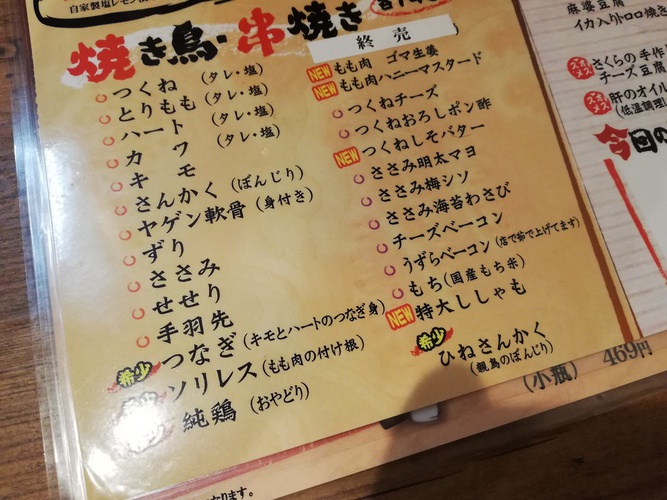 自家製塩レモン
焼き鳥・串焼き
つくね (タレ・塩)
とりもも (タレ・塩)
ハート (タレ・塩)
カワ (タレ・塩)
キモ
さんかく (ぼんじり)
ヤゲン軟骨 (身付き)
ずり
ささみ
せせり
手羽先
希少 つなぎ (キモとハートのつなぎ身)
ソリレス (もも肉の付け根)
純鶏 (おやどり)
終売
NEW もも肉 ゴマ生姜
NEW もも肉ハニーマスタード
つくねチーズ
つくねおろしポン酢
NEW つくねしそバター
ささみ明太マヨ
ささみ梅シソ
ささみ海苔わさび
チーズベーコン
うずらベーコン (店で茹で上げてます)
もち (国産もち米)
NEW 特大ししゃも
希少 ひねさんかく
(親鳥のぼんじり)
(小瓶) 469円
麻婆豆腐
イカ入りトロロ焼き
さくらの手作
チーズ豆腐
肝のオイル
(低温調理
今回の
なります。